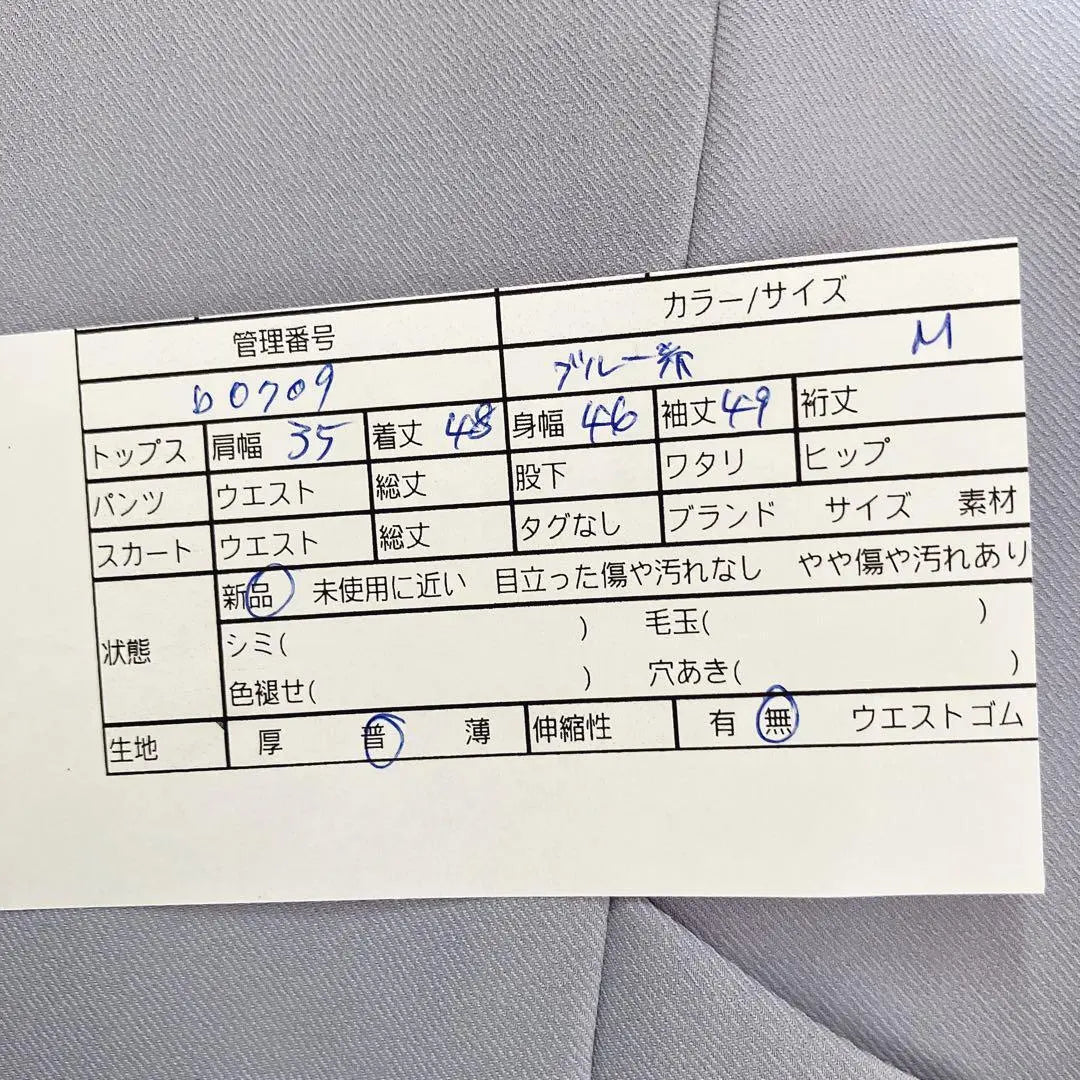 管理番号 カラー/サイズ
b0709 ブルー系 M
トップス 肩幅 35 着丈 48 身幅 46 袖丈 49 裄丈
パンツ ウエスト 総丈 股下 ワタリ ヒップ
スカート ウエスト 総丈 タグなし ブランド サイズ 素材
状態 新品 未使用に近い 目立った傷や汚れなし やや傷や汚れあり
シミ( ) 毛玉( )
色褪せ( ) 穴あき( )
生地 厚 普 薄 伸縮性 有 無 ウエストゴム